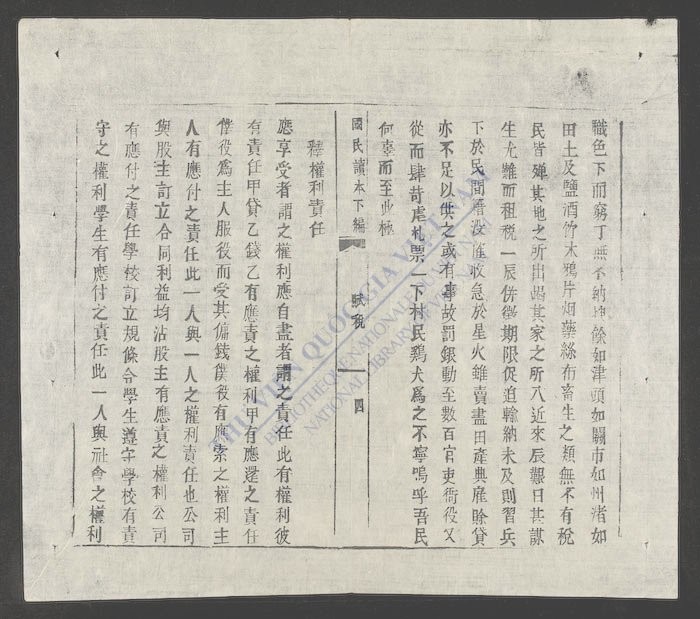 職色下而窮丁無不納其餘如津頭如關市如州渚如
田土及鹽酒竹木鴉片烟藥絲布畜生之類無不有稅
民皆殫其地之所出竭其家之所入近來辰艱日甚謀
生尤難而租稅一辰併徵期限促迫輸納未及則習兵
下於民間層沒催收急於星火雖賣盡田產典雇賒貸
亦不足以供之或有事故罰銀動至數百官吏衙役又
從而肆苛虐札票一下村民鷄犬爲之不寧嗚乎吾民
何辜而至此極
國民讀本下編 賦稅 四
釋權利責任
應享受者謂之權利應自盡者謂之責任此有權利彼
有責任甲貸乙錢乙有應責之權利甲有應還之責任
僕役爲主人服役而受其傭錢僕役有應索之權利主
人有應付之責任此一人與一人之權利責任也公司
與股主訂立合同利益均沾股主有應責之權利公司
有應付之責任學校訂立規條令學生遵守學校有責
守之權利學生有應付之責任此一人與社會之權利
THƯ VIỆN QUỐC GIA VIỆT NAM
BIBLIOTHÈQUE NATIONALE DU VIETNAM
NATIONAL LIBRARY OF VIETNAM